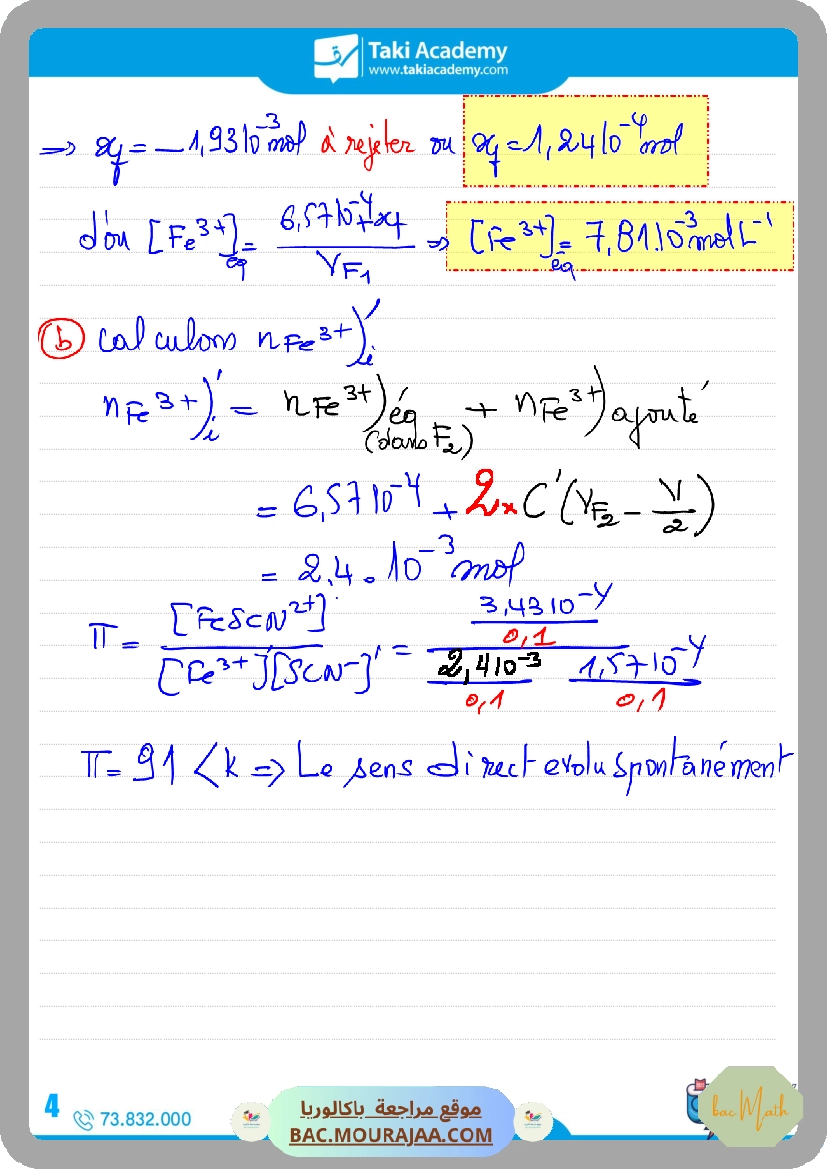 Taki Academy
www.takiacademy.com
=> xf = -1,93 10^-3 mol à rejeter ou xf = 1,24 10^-4 mol
d'ou [Fe^3+]éq = (6,57 10^-4 + xf) / VF1 => [Fe^3+]éq = 7,81.10^-3 mol L^-1
b calculons nFe^3+)'i
nFe^3+)'i = nFe^3+)éq (dans F2) + nFe^3+) ajouté
= 6,57 10^-4 + 2 x C'(VF2 - V/2)
= 2,4.10^-3 mol
π = [FeSCN^2+] / [Fe^3+][SCN^-]' = (3,43 10^-4 / 0,1) / (2,4 10^-3 / 0,1 1,57 10^-4 / 0,1)
π = 91 < k => Le sens direct evolu spontanément
4
73.832.000
موقع مراجعة باكالوريا
BAC.MOURAJAA.COM
bac Math